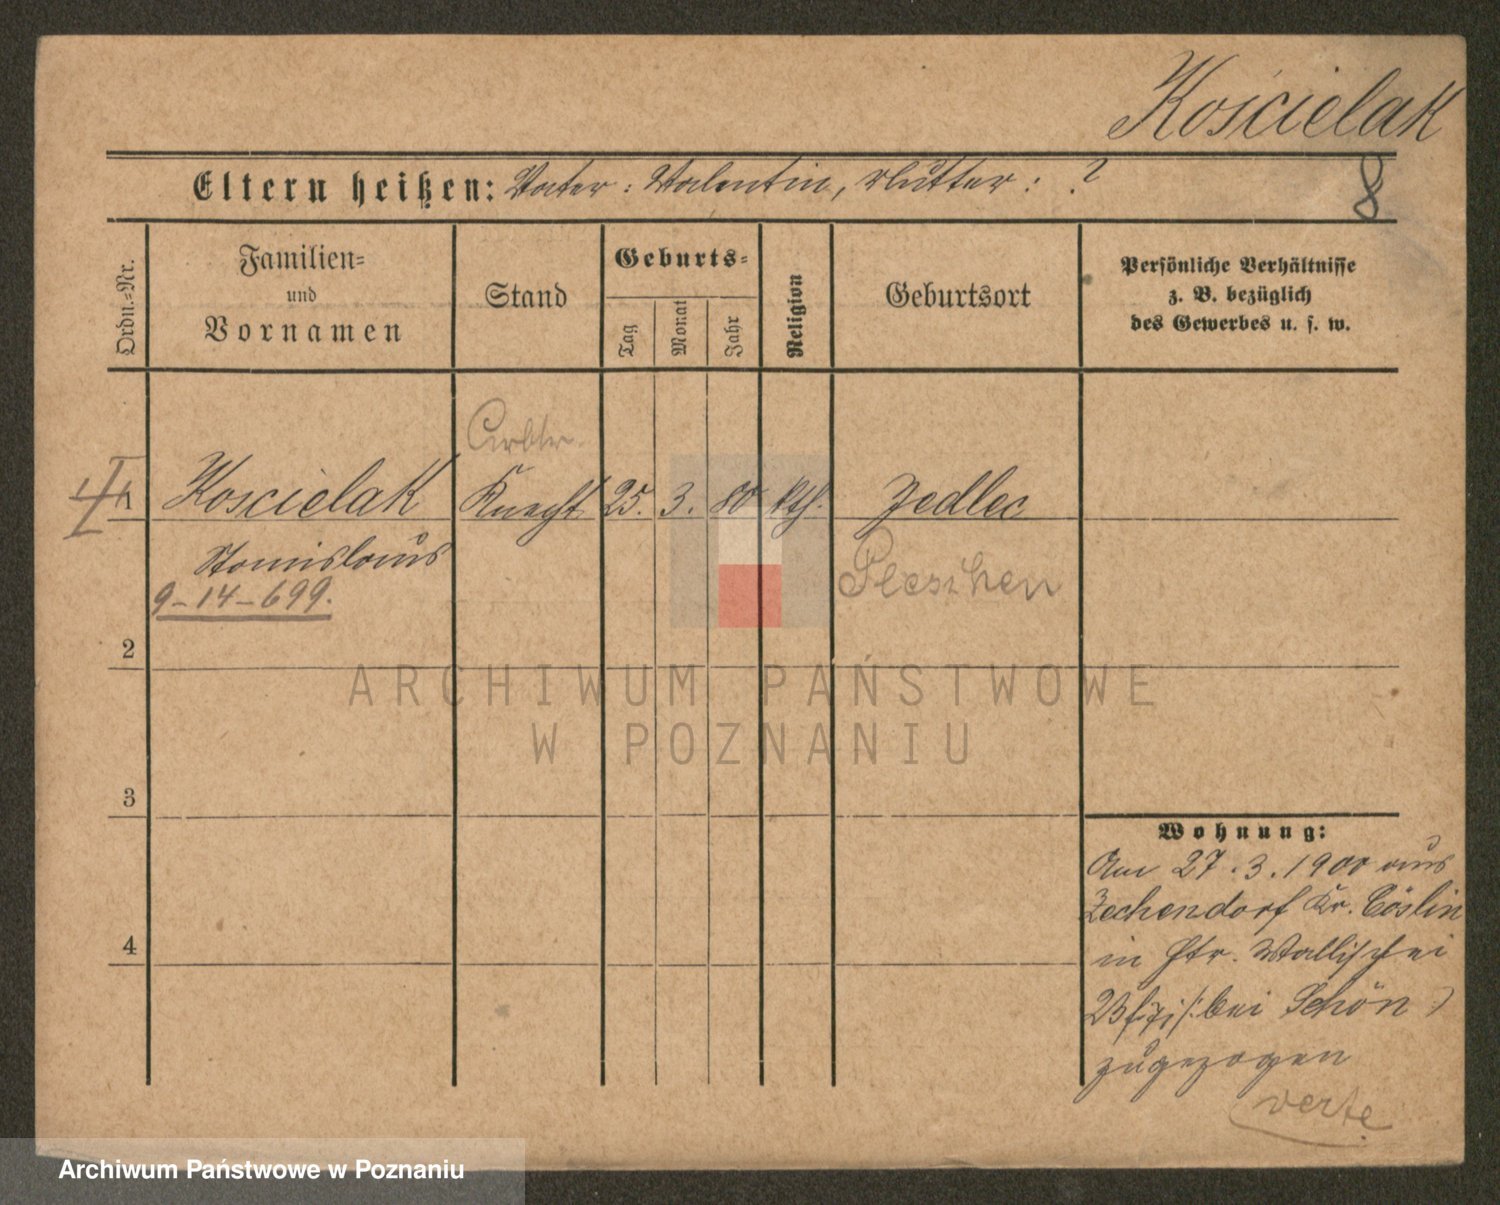 Kościelak
8
Eltern heißen: Vater: Valentin, Mutter: ?
Ordn.-Nr.
Familien-
und
Vornamen
Stand
Geburts-
Tag
Monat
Jahr
Religion
Geburtsort
Persönliche Verhältnisse
z. B. bezüglich
des Gewerbes u. s. w.
Arbtr.
1 Koscielak Knecht 25. 3. 80 kth. Jedlec
Stanislaus
Pleschen
9-14-699.
2
ARCHIWUM PAŃSTWOWE
W POZNANIU
3
Wohnung:
Am 27.3.1900 aus
Zechendorf Kr. Cöslin
4
in Htr. Wallischei
bei Schön
zugezogen
verte
Archiwum Państwowe w Poznaniu